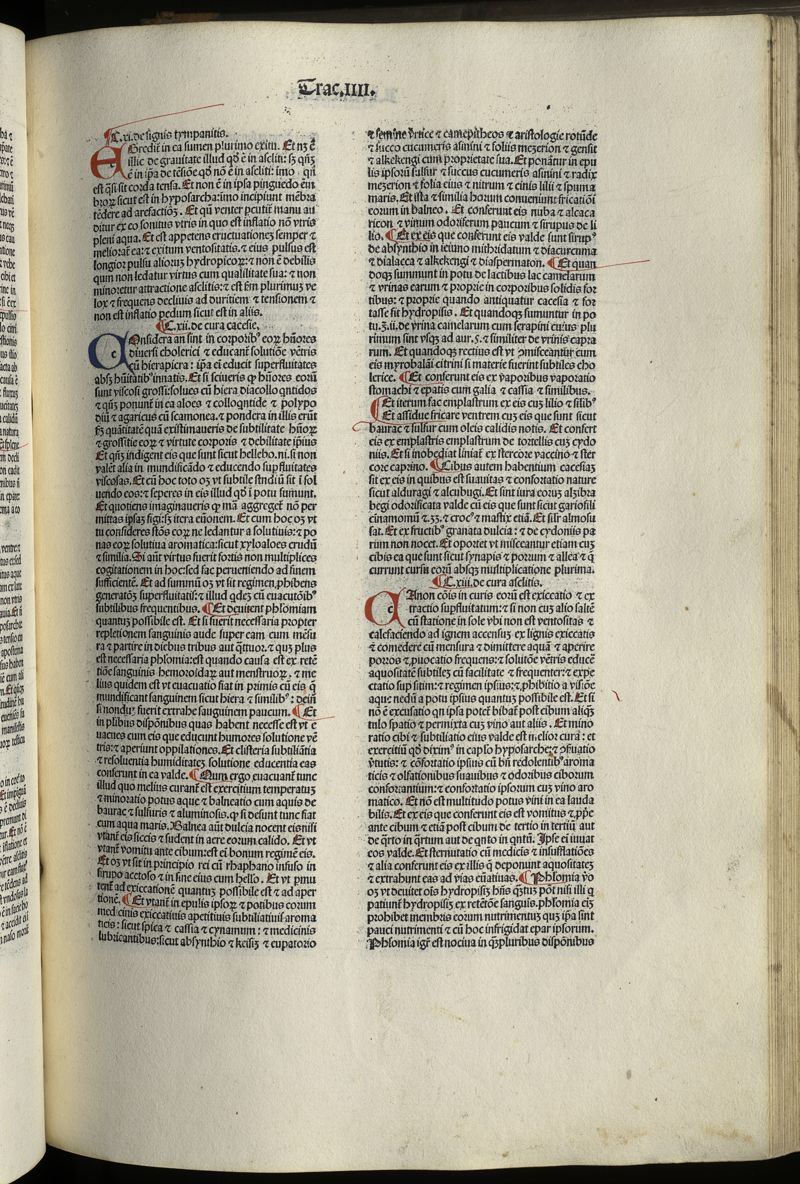 Trac.IIII.
C.xi.de signis tympanitis.
EGredit in ea sumen plurimo exitu. Et nō ē
illic de grauitate illud qđ ē in asclite: sꝫ qñꝫ
ē in ipa de tēsiōe qđ nō ē in ascliti: imo qñ
est qͣsi sit corda tensa. Et non ē in ipsa pinguedo ēm
broꝝ sicut est in hyposarcha: imo incipiunt mēbra
tēdere ad arefactioꝫ. Et qū venter pcutiꝉ manu au
ditur ex eo sonitus vtris in quo est inflatio nō vtris
pleni aqua. Et est appetens eructuationeꝫ semper ⁊
melioraꞇ ea: ⁊ exitum ventositatis. ⁊ eius pulsus est
longioꝛ pulsu alioruꝫ hydropicoꝝ: ⁊ non ē debilis
qum non ledatur virtus cum qualilitate sua: ⁊ non
minoretur attractione asclitis: ⁊ est ſm plurimuꝫ ve
lox ⁊ frequens decliuis ad duritiem ⁊ tensionem ⁊
non est inflatio pedum sicut in aliis.
C.xii.de cura cacesie.
COnsidera an sint in corporibꝰ eoꝝ hūores
diuersi cholerici ⁊ educant̄ solutiōe vētris
cū hierapicra: ipa eī educit supfluitates
absꝫ hūitatibꝰ innatis. Et si scieueris ꝙ hūores eorū
sunt viscosi grossi: solues cū hiera diacollo qntidos
⁊ qñꝫ ponunt̄ in ea aloes ⁊ colloqntide ⁊ polypo
diū ⁊ agaricus cū scamonea. ⁊ pondera in illis erūt
fꝫ quātitatē quā existimaueris de subtilitate hūoꝝ
⁊ grossitie eoꝝ ⁊ virtute corporis ⁊ debilitate ipius
Et qñꝫ indigent eis que sunt sicut hellebo.ni.si non
valēt alia in mundificādo ⁊ educendo supfluitates
viscosas. Et cū hoc toto oꝫ vt subtile studiū sit ī sol
uendo eos: ⁊ seperes in eis illud qđ ī potu sumunt.
Et quotiens imaginaueris ꝙ mā aggreget̄ nō per
mittas ipsaꝫ figi: sꝫ itera euōnem. Et cum hoc oꝫ vt
tu consideres stōs eoꝝ ne ledantur a solutiuis: ⁊ po
nas eoꝝ solutiua aromatica: sicut xyloaloes crudū
⁊ similia. Si aūt virtus fuerit fortis non multiplices
cogitationem in hoc: sed fac perueniendo ad finem
sufficientē. Et ad summū oꝫ vt sit regimen phibens
generatōꝫ superfluitatis: ⁊ illud qdeꝫ cū euacutiōibꝰ
subtilibus frequentibus. Et deuitent phlomiam
quantuꝫ possibile est. Et si fuerit necessaria propter
repletionem sanguinis aude super eam cum mēsu
ra ⁊ partire in diebus tribus aut q̄ttuor. ⁊ quꝫ plus
est necessaria phlomia: est quando causa est ex retē
tiōe sanguinis hemoroidaꝝ aut menstruoꝝ, ⁊ me
lius quidem est vt euacuatio fiat in primis cū eis q̄
mundificant sanguinem sicut hiera ⁊ similibꝰ: deiñ
si nonduꝫ fuerit extrahe sanguinem paucum. Et
in plibus dispōnibus quas habent necesse est vt e
uacues cum eis que educunt humores solutione vē
tris: ⁊ aperiunt oppilationes. Et clisteria subtiliātia
⁊ resoluentia humiditateꝫ solutione educentia eas
conferunt in ea valde. Num ergo euacuant̄ tunc
illud quo melius curant̄ est exercitium temperatuꝫ
⁊ minoratio potus aque ⁊ balneatio cum aquis de
baurac ⁊ sulfuris ⁊ aluminosis. ꝙ si desunt tunc fiat
cum aqua maris. Balnea aūt dulcia nocent eis nisi
vtant̄ eis siccis ⁊ sudent in aere eorum calido. Et vt
vtant̄ vomitu ante cibum: est eī bonum regimē eis.
Et oꝫ vt sit in principio rei cū rhaphano infuso in
sirupo acetoso ⁊ in fine eius cum helleo. Et vt pmu
tent̄ ad exiccationē quantuꝫ possibile est ⁊ ad aper
tionē. Et vtant̄ in epulis ipsoꝝ ⁊ potibus eorum
medicinis exiccatiuis apetitiuis subtiliatiuis aroma
ticis: sicut spica ⁊ cassia ⁊ cynamum: ⁊ medicinis
lubricantibus: sicut absynthio ⁊ keisiꝫ ⁊ eupatorio
⁊ semine vrtice ⁊ camepitheos ⁊ aristologie rotūde
⁊ succo cucumeris asinini ⁊ foliis mezerion ⁊ gensit
⁊ alkekengi cum proprietate sua. Et ponātur in epu
lis ipsorū sulfur ⁊ succus cucumeris asinini ⁊ radix
mezerion ⁊ folia eius ⁊ nitrum ⁊ cinis lilii ⁊ spuma
maris. Et ista ⁊ similia horum conueniunt fricatiōi
eorum in balneo. Et conferunt eis nuba ⁊ alcaca
ricon ⁊ vinum odoriserum paucum ⁊ sirupus de li
lio. Et ex eis que conferunt eis valde sunt sirupꝰ
de absynthio in ieiuno mithridatum ⁊ diacurcuma
⁊ dialacca ⁊ alkekengi ⁊ diaspermaton. Et quan
doqꝫ summunt in potu de lactibus lac camelarum
⁊ vrinas earum ⁊ proprie in corporibus solidis for
tibus: ⁊ proprie quando antiquatur cacesia ⁊ for
tasse fit hydropisis. Et quandoqꝫ sumuntur in po
tu.ʒ.ii.de vrina camelarum cum serapini cuius plu
rimum sint vsqꝫ ad aur.s. ⁊ similiter de vrinis capra
rum. Et quandoqꝫ rectius est vt pmisceantur cum
eis myrobalāi citrini si materie fuerint subtiles cho
lerice. Et conferunt eis ex vaporibus vaporatio
stomachi ⁊ epatis cum galia ⁊ cassia ⁊ similibus.
Et iterum fac emplastrum ex eis cuꝫ lilio ⁊ silibꝰ
Et assidue fricare ventrem cuꝫ eis que sunt sicut
baurac ⁊ sulfur cum oleis calidis notis. Et confert
eis ex emplastris emplastrum de tortellis cuꝫ cydo
niis. Et si inobediat liniat̄ ex stercore vaccino ⁊ ster
core caprino. Cibus autem habentium cacesiaꝫ
sit ex eis in quibus est suauitas ⁊ confortatio nature
sicut alduragi ⁊ alcubugi. Et sint iura eoruꝫ alzibra
begi odorificata valde cū eis que sunt sicut gariofili
cinamomū ⁊.ʒʒ. ⁊ crocꝰ ⁊ mastix etiā. Et silr almosu
fat. Et ex fructibꝰ granata dulcia: ⁊ de cydoniis pa
rum non nocet. Et oportet vt misceantur etiam cuꝫ
cibis ea que sunt sicut synapis ⁊ porrum ⁊ allea ⁊ q̄
currunt cursu eorū absqꝫ multiplicatione plurima.
C.xiii.de cura asclitis.
CAnon cōis in curis eorū est exiccatio ⁊ ex
tractio supfluitatum: ⁊ si non cuꝫ alio saltē
cū statione in sole vbi non est ventositas ⁊
calefaciendo ad ignem accensuꝫ ex lignis exiccatis
⁊ comedere cū mensura ⁊ dimittere aquā ⁊ aperire
porros ⁊ puocatio frequens: ⁊ solutiōe vētris educē
aquositatē subtileꝫ cū facilitate ⁊ frequenter: ⁊ expe
ctatio sup sitim: ⁊ regimen ipsius: ⁊ phibitio a visiōe
aque nedū a potu ipsius quantuꝫ possibile est. Et si
nō ē excusatio qn ipsa potet̄ bibat̄ post cibum aliqͣꝫ
tulo spatio ⁊ permixta cuꝫ vino aut aliis. Et mino
ratio cibi ⁊ subtiliatio eius valde est melior cura: et
exercitiū qđ diximꝰ in caplo hyposarche: ⁊ pseruatio
v̄tutis: ⁊ cōfortatio ipsius cū bñ redolentibꝰ aroma
ticis ⁊ olfationibus suauibus ⁊ odoribus ciborum
confortantium: ⁊ confortatio ipsorum cuꝫ vino aro
matico. Et nō est multitudo potus vini in ea lauda
bilis. Et ex eis que conferunt eis est vomitus ⁊ ppe
ante cibum ⁊ etiā post cibum de tertio in tertiū aut
de q̄rto in q̄rtum aut de qnto in qntū. Ipse eī iuuat
eos valde. Et sternutatio cū medicis ⁊ insufflatiōes
⁊ alia conferunt eis ex illis q̄ deponunt aquositateꝫ
⁊ extrahunt eas ad vias euātiuas. Phlomia v̄o
oꝫ vt deuitet oīs hydropisiꝫ hñs qͣꝫtuꝫ pōt nisi illi q
patiunt̄ hydropisiꝫ ex retētōe sanguīs. phlomia eīꝫ
prohibet membris eorum nutrimentuꝫ quꝫ ipa sint
pauci nutrimenti ⁊ cū hoc infrigidat epar ipsorum.
Phlomia igr̄ est nociua in qͣꝫpluribus dispōnibus